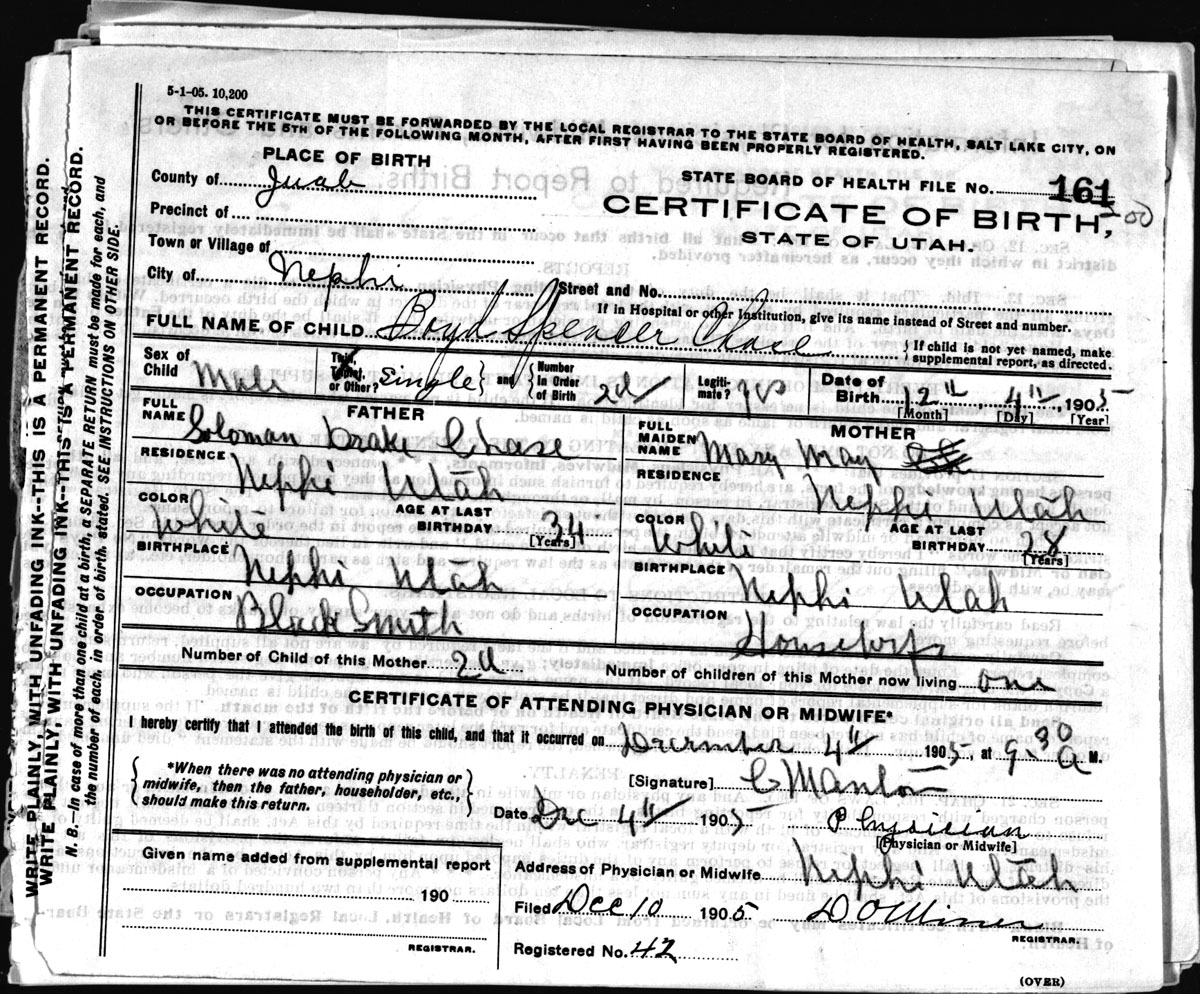 5-1-05. 10,200
THIS CERTIFICATE MUST BE FORWARDED BY THE LOCAL REGISTRAR TO THE STATE BOARD OF HEALTH, SALT LAKE CITY, ON
OR BEFORE THE 5TH OF THE FOLLOWING MONTH, AFTER FIRST HAVING BEEN PROPERLY REGISTERED.
PLACE OF BIRTH
STATE BOARD OF HEALTH FILE NO. 161
County of Juab
CERTIFICATE OF BIRTH,
Precinct of
STATE OF UTAH.
Town or Village of
City of Nephi Street and No.
If in Hospital or other Institution, give its name instead of Street and number.
FULL NAME OF CHILD Boyd Spenser Chase } If child is not yet named, make supplemental report, as directed.
Sex of Child Male Twin, Triplet, or Other? Single } and { Number In Order of Birth 2d Legiti- mate? yes Date of Birth 12th, 4th, 1905
[Month] [Day] [Year]
FATHER
FULL NAME Soloman Drake Chase
RESIDENCE Nephi Utah
COLOR White AGE AT LAST BIRTHDAY 34 [Years]
BIRTHPLACE Nephi Utah
OCCUPATION Black Smith
MOTHER
FULL MAIDEN NAME Mary May
RESIDENCE Nephi Utah
COLOR White AGE AT LAST BIRTHDAY 28 [Years]
BIRTHPLACE Nephi Utah
OCCUPATION Housewife
Number of Child of this Mother 2d Number of children of this Mother now living one
CERTIFICATE OF ATTENDING PHYSICIAN OR MIDWIFE*
I hereby certify that I attended the birth of this child, and that it occurred on December 4th 1905, at 9.30 A M.
{ *When there was no attending physician or midwife, then the father, householder, etc., should make this return. }
[Signature]
Date Dec 4th 1905 Physician
[Physician or Midwife]
Given name added from supplemental report
190
REGISTRAR.
Address of Physician or Midwife Nephi Utah
Filed Dec 10 1905 D O Miner
REGISTRAR.
Registered No. 42
(OVER)
WRITE PLAINLY WITH UNFADING INK--THIS IS A PERMANENT RECORD.
WRITE PLAINLY WITH UNFADING INK--THIS IS A PERMANENT RECORD.
N. B.—In case of more than one child at a birth, a SEPARATE RETURN must be made for each, and
the number of each, in order of birth, stated. SEE INSTRUCTIONS ON OTHER SIDE.